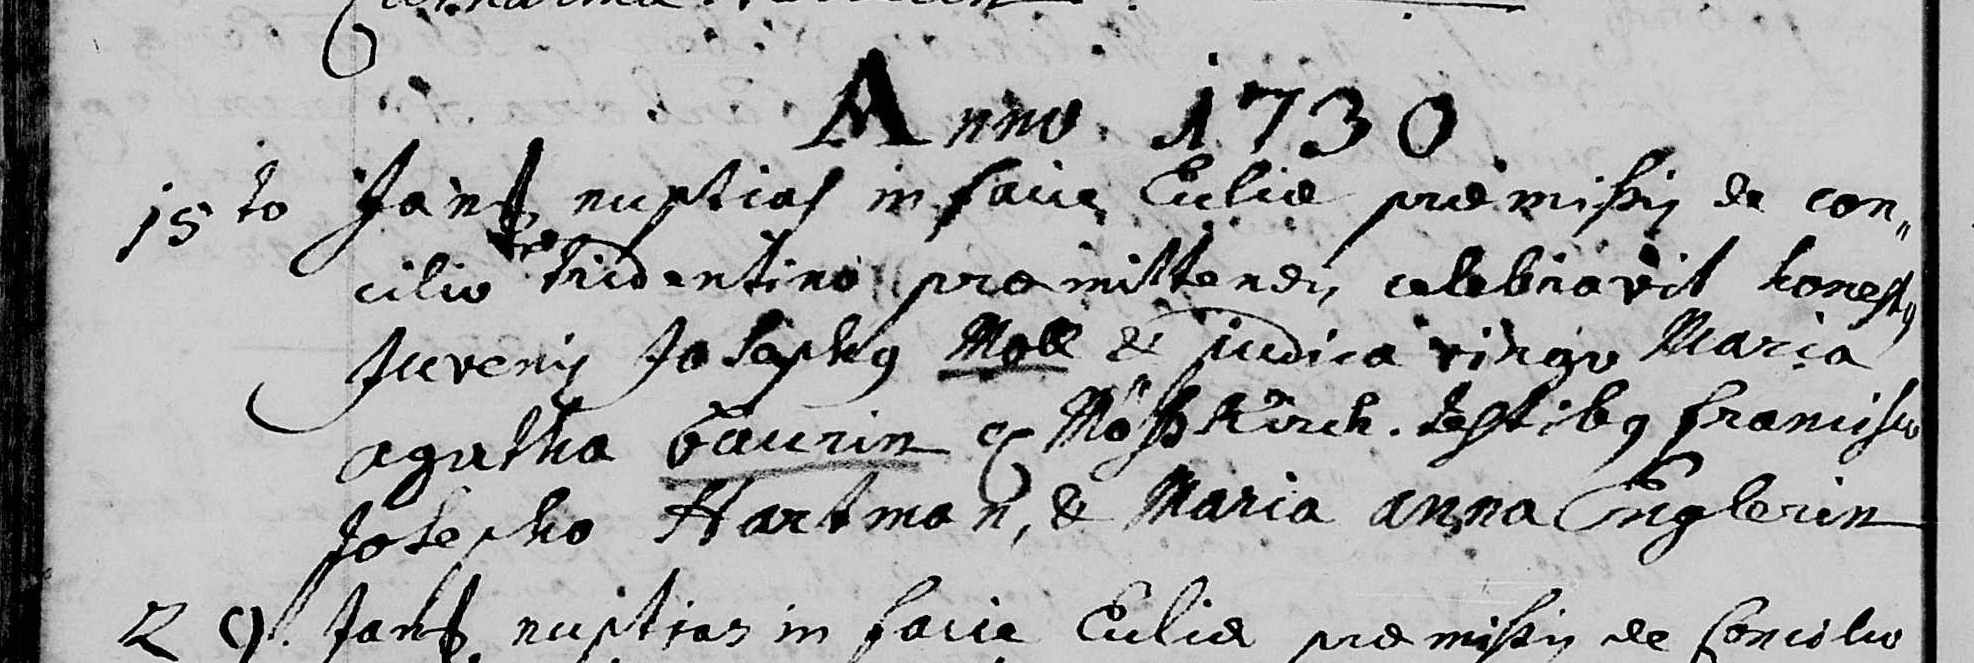 Anno 1730
15 to Janr nuptias in facie Eccliæ præmissis de con„
cilio Tridentino præmittendis celebravit honestus
Juvenis Josephus Moll & pudica virgo Maria
agatha Gaurin ex Mösskirch. testibus francisco
Josepho Hartman, & Maria anna Englerin
29. Janr nuptias in facie Eccliæ præmissis de Concilio